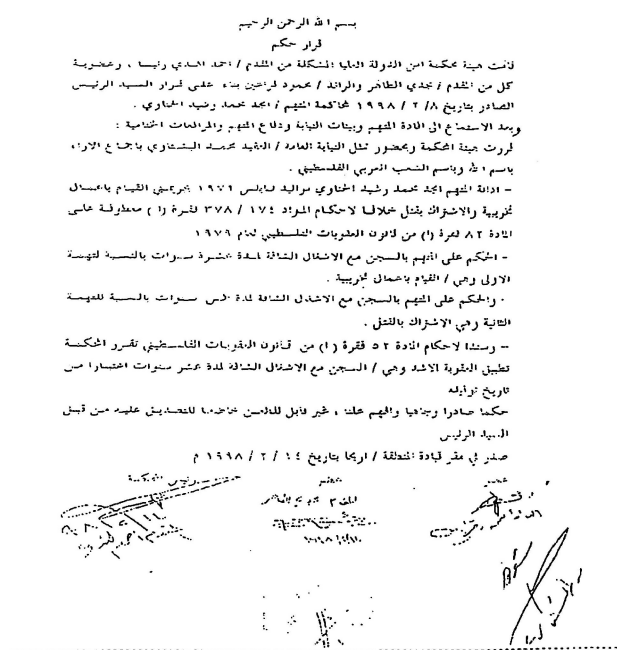 بسم الله الرحمن الرحيم
قرار حكم
قامت هيئة محكمة امن الدولة العليا المشكلة من المقدم / احمد المدي رئيسا ، وعضوية
كل من المقدم / نجدي الطاهر والرائد / محمود فراحين بناء على قرار السيد الرئيس
الصادر بتاريخ ٨ / ٢ / ١٩٩٨ لمحاكمة المتهم / امجد محمد رشيد الحناوي .
وبعد الاستماع الى افادة المتهم وبينات النيابة ودفاع المتهم والمرافعات الختامية :
قررت هيئة المحكمة وبحضور ممثل النيابة العامة / العقيد محمد البشتاوي باجماع الاراء
باسم الله وباسم الشعب العربي الفلسطيني .
- ادانة المتهم امجد محمد رشيد الحناوي مواليد نابلس ١٩٧١ بجريمتي القيام باعمال
تخريبية والاشتراك بقتل خلافا لاحكام المواد ١٧٤ / ٣٧٨ فقرة (ا) معطوفة على
المادة ٨٢ فقرة (ا) من قانون العقوبات الفلسطيني لعام ١٩٧٩
- الحكم على المتهم بالسجن مع الاشغال الشاقة لمدة عشرة سنوات بالنسبة للتهمة
الاولى وهي / القيام باعمال تخريبية .
- والحكم على المتهم بالسجن مع الاشغال الشاقة لمدة خمس سنوات بالنسبة للتهمة
الثانية وهي الاشتراك بالقتل .
- وسندا لاحكام المادة ٥٢ فقرة (ا) من قانون العقوبات الفلسطيني تقرر المحكمة
تطبيق العقوبة الاشد وهي / السجن مع الاشغال الشاقة لمدة عشر سنوات اعتبارا من
تاريخ توقيفه
حكما صادرا وجاهيا وافهم علنا ، غير قابل للطعن خاضعا للتصديق عليه من قبل
السيد الرئيس
صدر في مقر قيادة المنطقة / اريحا بتاريخ ١٤ / ٢ / ١٩٩٨ م
عضو عضو رئيس المحكمة